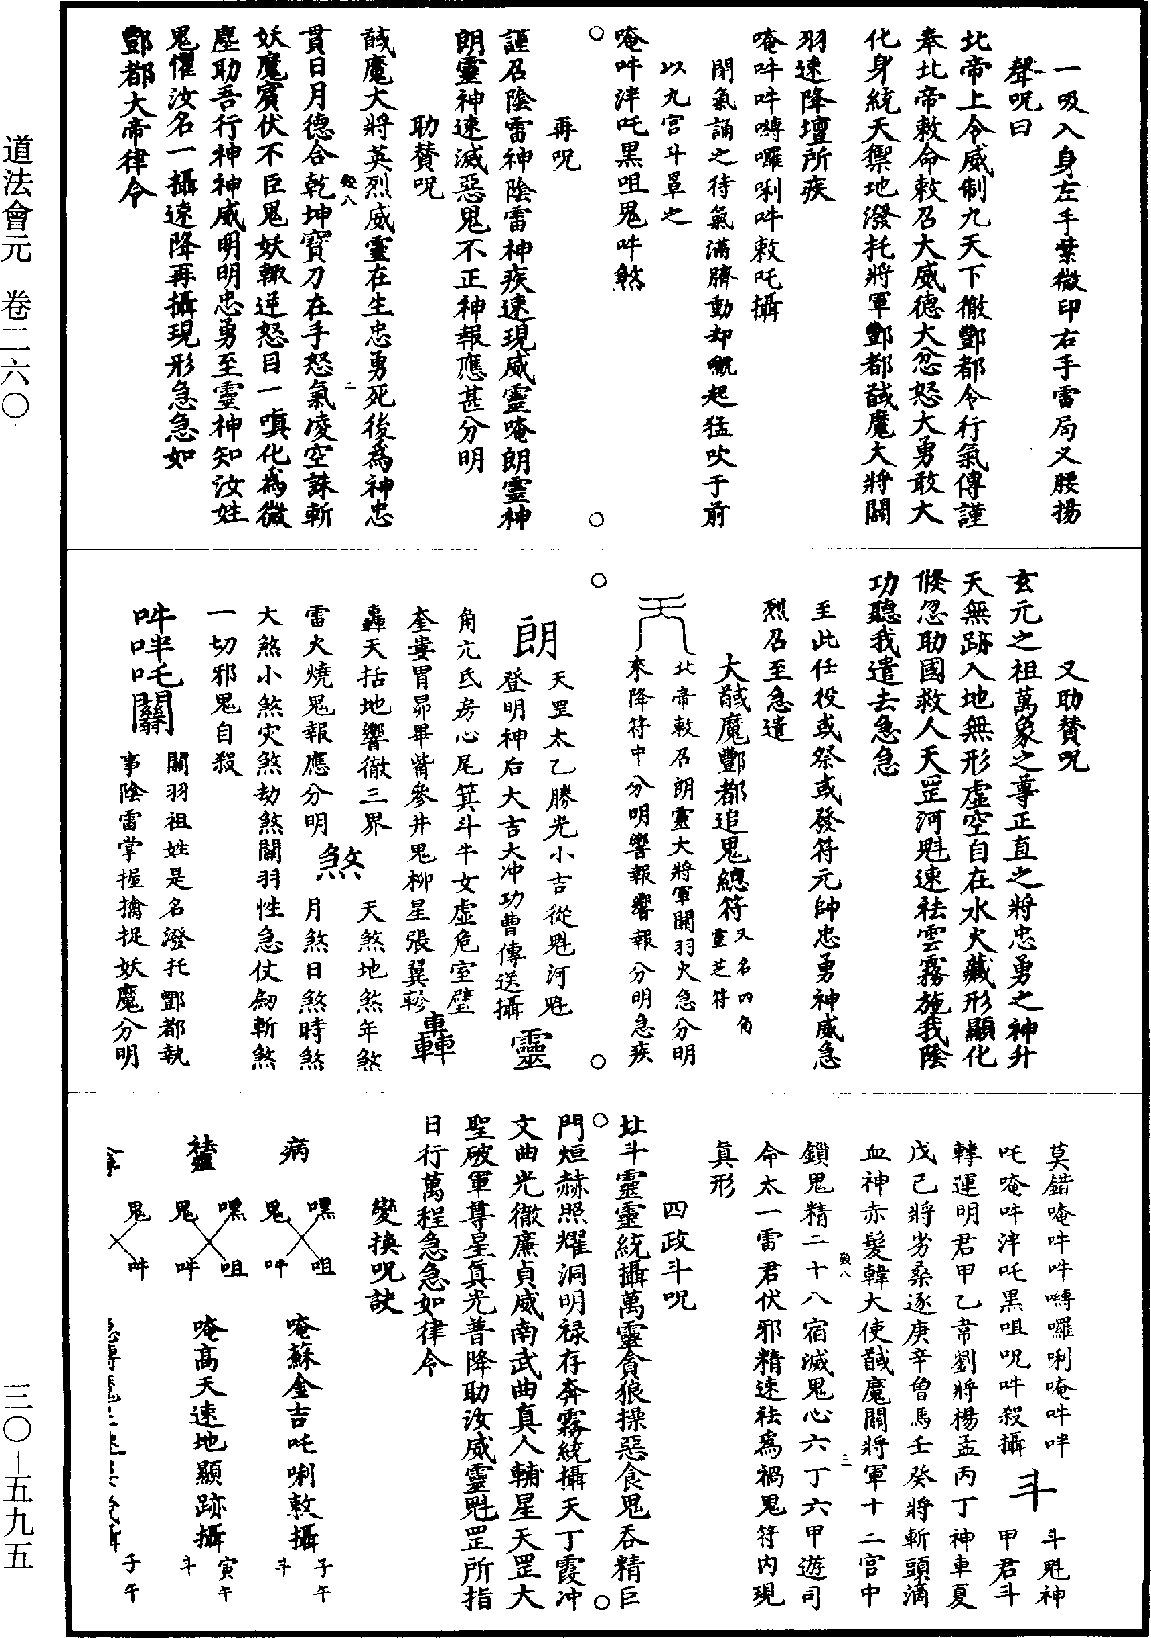 一吸入身左手紫微印右手雷局叉腰揚
聲呪曰
北帝上令威制九天下徹酆都令行氣傳謹
奉北帝敕命敕召大威德大忿怒大勇敢大
化身統天禦地潑托將軍酆都馘魔大將關
羽速降壇所疾
唵吽吽嚩囉唎吽敕吒攝
閉氣誦之待氣滿臍動却嘅起猛吹于前
以九宮斗罩之
唵吽泮吒黑咀鬼吽煞
再呪
謹召陰雷神陰雷神疾速現威靈唵朗靈神
朗靈神速滅惡鬼不正神報應甚分明
助贊呪
馘魔大將英烈威靈在生忠勇死後爲神忠
貫日月德合乾坤寶刀在手怒氣凌空誅斬
妖魔賓伏不臣鬼妖輙逆怒目一嗔化爲微
塵助吾行神神威明明忠勇至靈神知汝姓
鬼懼汝名一攝速降再攝現形急急如
酆都大帝律令
又助贊呪
玄元之祖萬象之尊正直之將忠勇之神升
天無跡入地無形虛空自在水火藏形顯化
倐忽助國救人天罡河魁速袪雲霧施我陰
功聽我遣去急急
至此任役或祭或發符元帥忠勇神威急
烈召至急遣
大馘魔酆都追鬼總符又名四角靈芝符
北帝敕召朗靈大將軍關羽火急分明
來降符中分明響報響報分明急疾
朗
天罡太乙勝光小吉從魁河魁
登明神后大吉大冲功曹傳送攝
靈
角亢氐房心尾箕斗牛女虛危室壁
奎婁胃昴畢觜參井鬼柳星張翼軫
轟
轟天括地響徹三界
雷火燒鬼報應分明
煞
天煞地煞年煞
月煞日煞時煞
大煞小煞灾煞劫煞關羽性急仗劒斬煞
一切邪鬼自殺
吽吽吒關
關羽祖姓是名潑托酆都執
事陰雷掌握擒捉妖魔分明
莫錯唵吽吽嚩囉唎唵吽吽
吒唵吽泮吒黑咀呪吽殺攝
斗
斗魁神
甲君斗
轉運明君甲乙帝劉將揚孟丙丁神車夏
戊己將劣桑逐庚辛魯馬壬癸將斬頭滴
血神赤髮韓大使馘魔關將軍十二宮中
鎖鬼精二十八宿滅鬼心六丁六甲遊司
命太一雷君伏邪精速袪爲禍鬼符内現
真形
四政斗呪
北斗靈靈統攝萬靈貪狼操惡食鬼吞精巨
門烜赫照耀洞明禄存奔霧統攝天丁霞冲
文曲光徹廉貞威南武曲真人輔星天罡大
聖破軍尊星真光普降助汝威靈魁罡所指
日行萬程急急如律令
變換呪訣
病
嘿 鬼
咀 吽
唵蘇金吉吒唎敕攝
子午
斗
嘿 鬼
咀 吽
唵高天速地顯跡攝
寅午
斗
鬼
吽
子午
道法會元　卷二六〇
三〇—五九五